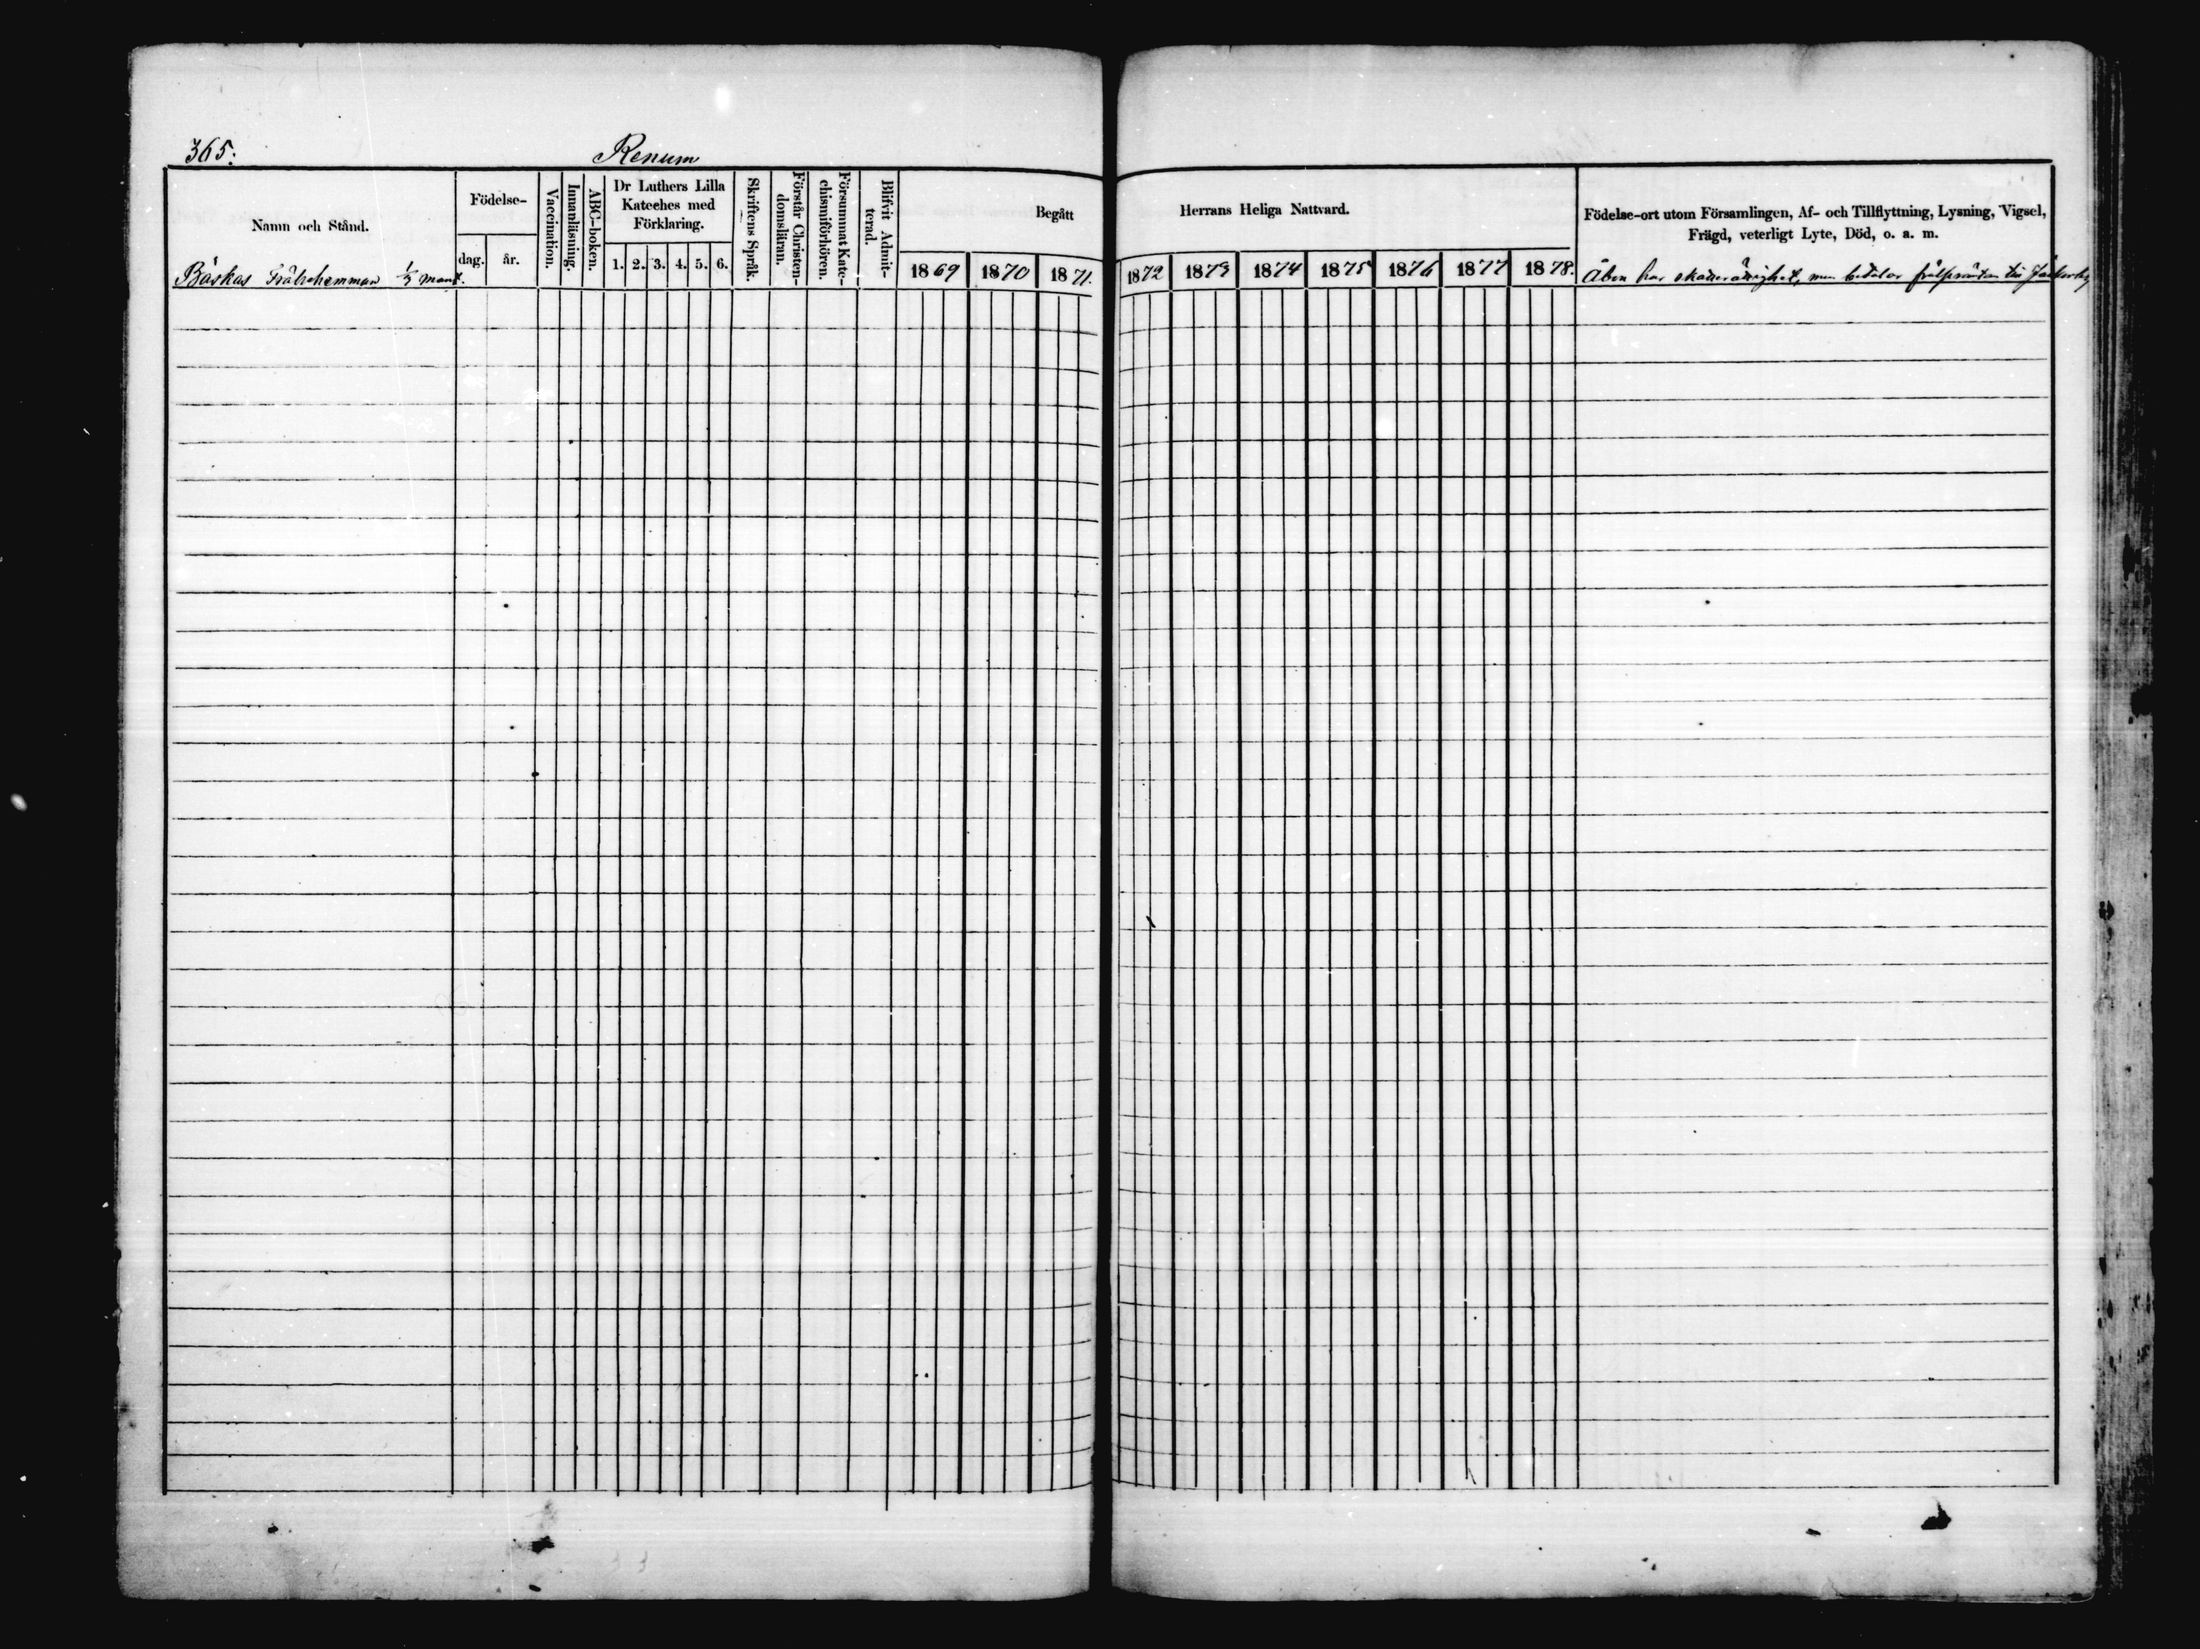 365.
Renum
Namn och Stånd.
Födelse-
dag.
år.
Vaccination.
Innanläsning.
ABC-boken.
Dr Luthers Lilla
Kateches med
Förklaring.
1. 2. 3. 4. 5. 6.
Skriftens Språk.
Förstår Christen-
domsläran.
Försummat Kate-
chismiförhören.
Blifvit Admit-
terad.
Begått
1869 1870 1871.
Herrans Heliga Nattvard.
1872 1873 1874 1875 1876 1877 1878.
Födelse-ort utom Församlingen, Af- och Tillflyttning, Lysning, Vigsel,
Frägd, veterligt Lyte, Död, o. a. m.
Backas Frälsehemman 1/3 mant.
Åbon har skatterättighet, men betalar frälseräntan till